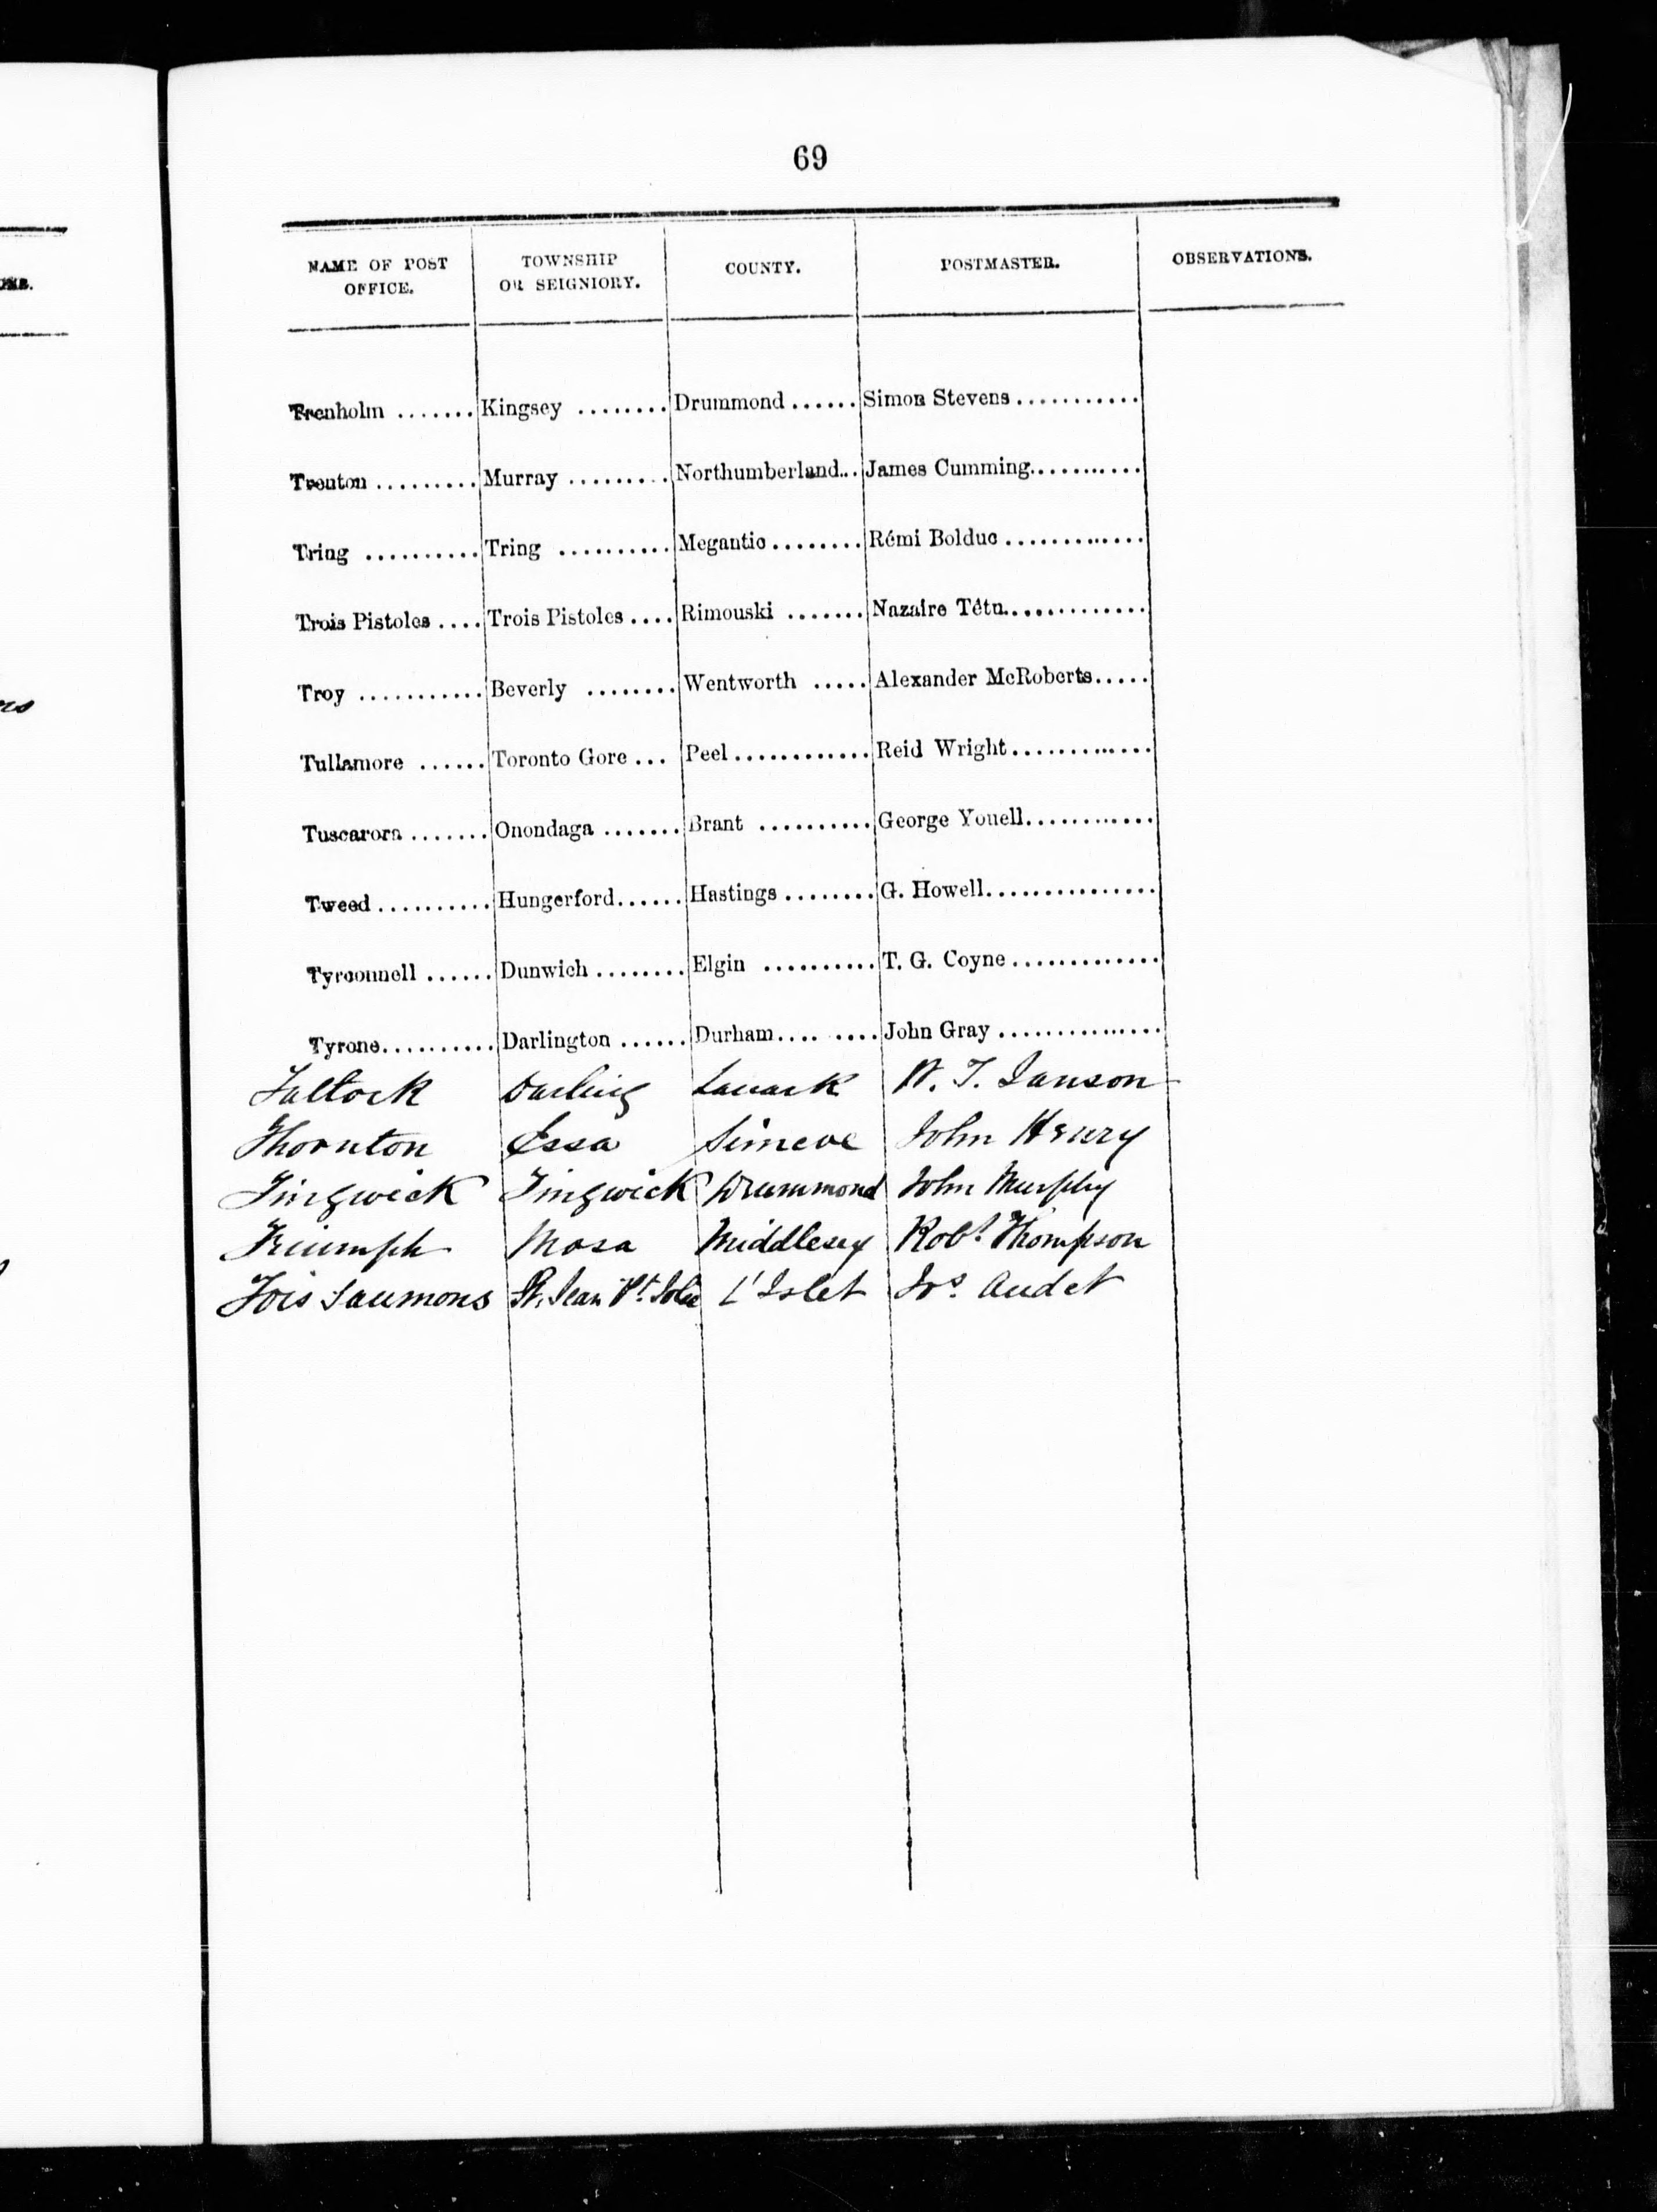 69
NAME OF POST OFFICE. TOWNSHIP OR SEIGNIORY. COUNTY. POSTMASTER. OBSERVATIONS.
Trenholm ....... Kingsey ........ Drummond ...... Simon Stevens ...........
Trenton ......... Murray ......... Northumberland... James Cumming..........
Tring .......... Tring .......... Megantic ........ Rémi Bolduc .............
Trois Pistoles .... Trois Pistoles .... Rimouski ....... Nazaire Têtu.............
Troy ........... Beverly ........ Wentworth ..... Alexander McRoberts.....
Tullamore ...... Toronto Gore ... Peel ............ Reid Wright .............
Tuscarora ....... Onondaga ....... Brant .......... George Youell............
Tweed .......... Hungerford...... Hastings ........ G. Howell...............
Tyrconnell ...... Dunwich ........ Elgin .......... T. G. Coyne .............
Tyrone.......... Darlington ...... Durham.... .... John Gray ..............
Darling Lanark
Thornton Essa Simcoe John Henry
Tingwick Tingwick Drummond John Murphy
Triumph Mosa Middlesex Robt. Thompson
Tois Saumons St. Jean Pt. Jolie L'Islet Jos Audet